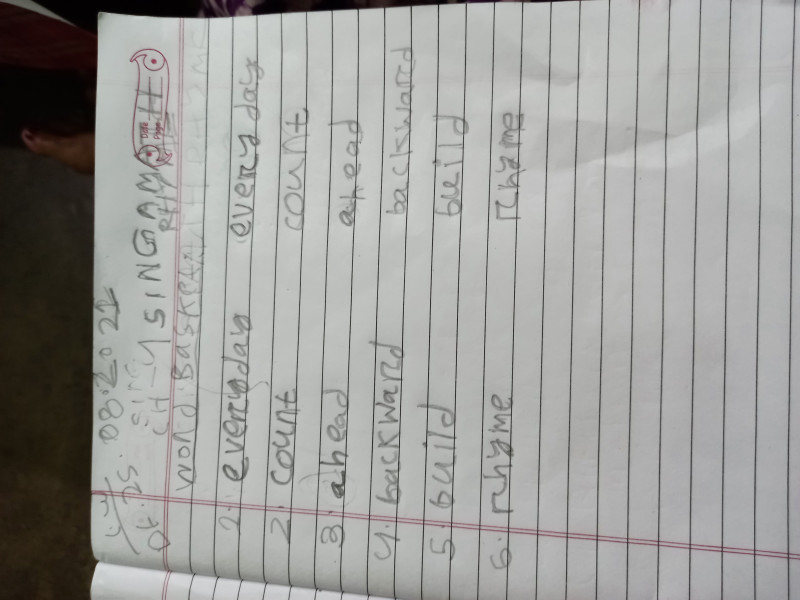 Dt. 25.08.2021
CH 4 SING A MATH
RHYME
WORD BASKET
1. everyday everyday
2. count count
3. ahead ahead
4. backward backward
5. build build
6. rhyme rhyme